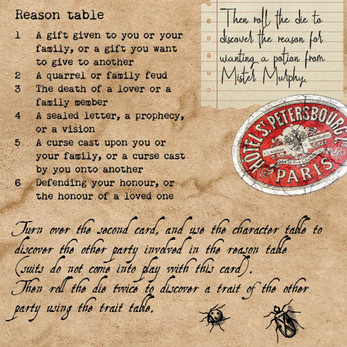 Reason table
1 A gift given to you or your
family, or a gift you want
to give to another
2 A quarrel or family feud
3 The death of a lover or a
family member
4 A sealed letter, a prophecy,
or a vision
5 A curse cast upon you or
your family, or a curse cast
by you onto another
6 Defending your honour, or
the honour of a loved one
Then roll the die to
discover the reason for
wanting a potion from
Mister Murphy.
HOTEL ST PETERSBOURG
PARIS
Turn over the second card, and use the character table to
discover the other party involved in the reason table
(suits do not come into play with this card).
Then roll the die twice to discover a trait of the other
party using the trait table.